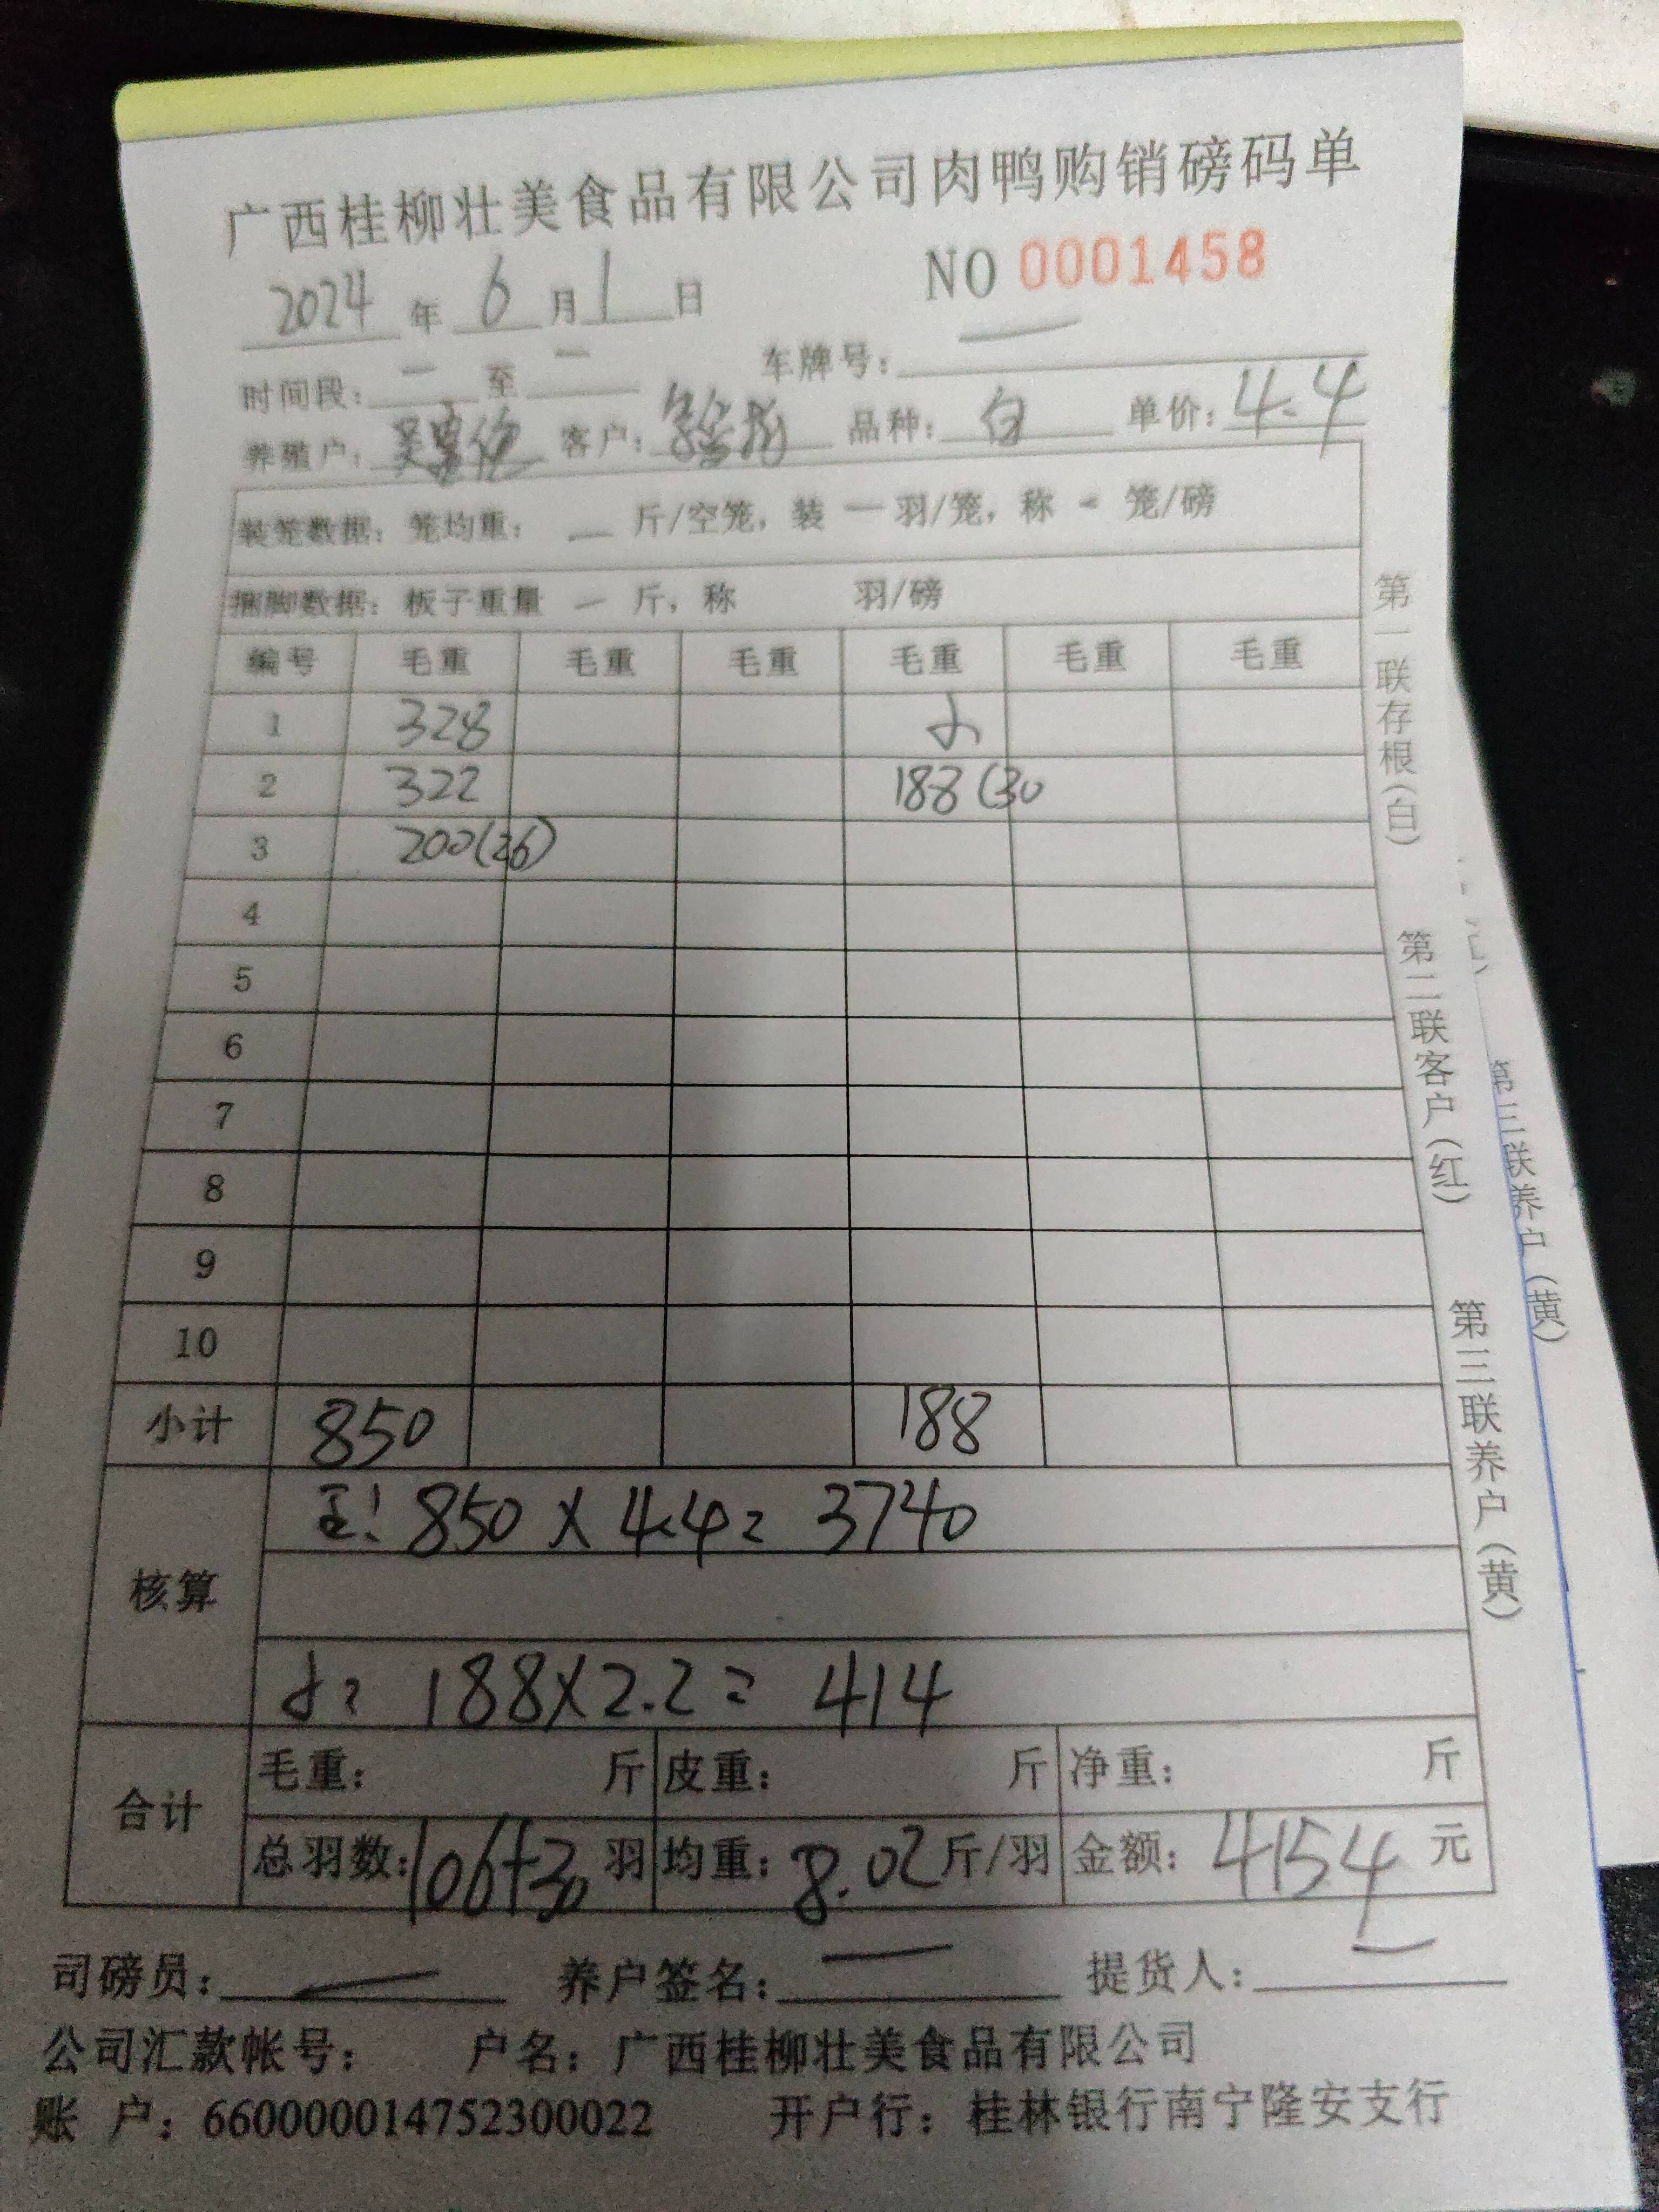 广西桂柳壮美食品有限公司肉鸭购销磅码单
2024年6月1日 NO 0001458
时间段：一至一 车牌号：一
养殖户：吴 客户： 品种：白 单价：4.4
装笼数据：笼均重：一斤/空笼，装一羽/笼，称-笼/磅
捆脚数据：板子重量一斤，称 羽/磅
编号 毛重 毛重 毛重 毛重 毛重 毛重
1 328
2 322 188(30
3 200(26)
4
5
6
7
8
9
10
小计 850 188
核算
850×4.4=3740
188×2.2=414
合计
毛重： 斤 皮重： 斤 净重： 斤
总羽数：106+30羽 均重：8.02斤/羽 金额：4154元
司磅员：一 养户签名：一 提货人：一
公司汇款帐号： 户名：广西桂柳壮美食品有限公司
账 户：660000014752300022 开户行：桂林银行南宁隆安支行
第一联存根(白) 第二联客户(红) 第三联养户(黄)
第三联养户(黄)